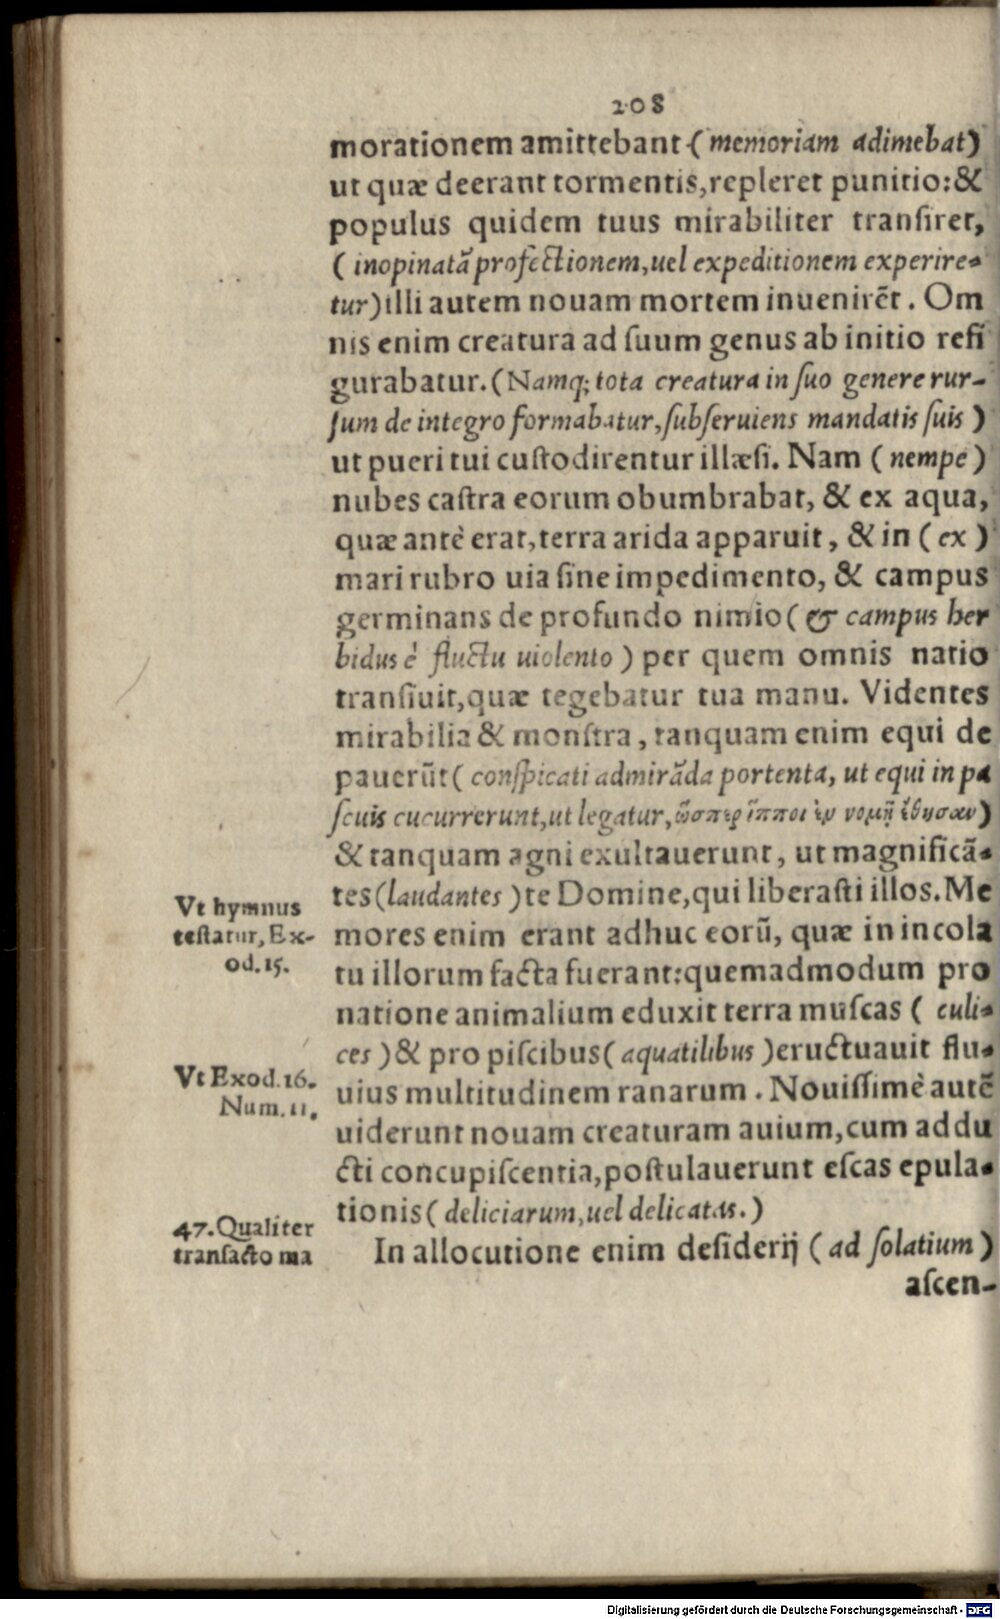 208
morationem amittebant (memoriam adimebat)
ut quæ deerant tormentis, repleret punitio: &
populus quidem tuus mirabiliter transiret,
(inopinatã profectionem, uel expeditionem experire-
tur) illi autem nouam mortem inuenirẽt. Om
nis enim creatura ad suum genus ab initio refi
gurabatur. (Namq; tota creatura in suo genere rur-
sum de integro formabatur, subseruiens mandatis suis)
ut pueri tui custodirentur illæsi. Nam (nempe)
nubes castra eorum obumbrabat, & ex aqua,
quæ antè erat, terra arida apparuit, & in (ex)
mari rubro uia sine impedimento, & campus
germinans de profundo nimio (& campus her
bidus è fluctu uiolento) per quem omnis natio
transiuit, quæ tegebatur tua manu. Videntes
mirabilia & monstra, tanquam enim equi de
pauerũt (conspicati admirãda portenta, ut equi in pa
scuis cucurrerunt, ut legatur, ὥσπερ ἵπποι ἐν νομῇ ἔθησαν)
& tanquam agni exultauerunt, ut magnificã-
tes (laudantes) te Domine, qui liberasti illos. Me
Vt hymnus
testatur, Ex-
od. 15.
mores enim erant adhuc eorũ, quæ in incola
tu illorum facta fuerant: quemadmodum pro
natione animalium eduxit terra muscas (culi-
ces) & pro piscibus (aquatilibus) eructuauit flu-
Vt Exod. 16.
Num. 11.
uius multitudinem ranarum. Nouissimè autẽ
uiderunt nouam creaturam auium, cum addu
cti concupiscentia, postulauerunt escas epula-
tionis (deliciarum, uel delicatas.)
47. Qualiter
transacto ma
In allocutione enim desiderij (ad solatium)
ascen-
Digitalisierung gefördert durch die Deutsche Forschungsgemeinschaft - DFG